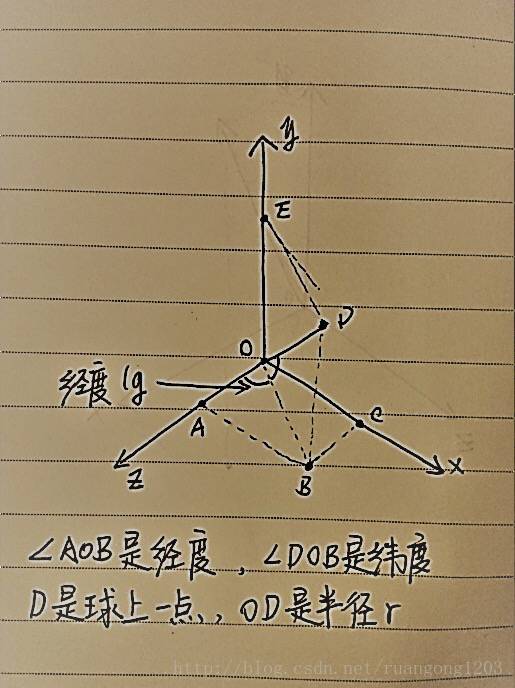 y
E
D
O
经度 lg
A
C
Z
B
X
∠AOB是经度，∠DOB是纬度
D是球上一点，，OD是半径r
http://blog.csdn.net/ruangong1203